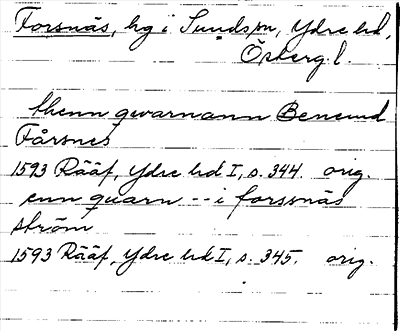 Forsnäs, hg i Sunds sn, Ydre hd,
Östergl.
thenn qwarnann Benemd
Fårsnes
1593 Rääf, Ydre hd I, s. 344. orig.
enn quarn -- i forssnäs
ström
1593 Rääf, Ydre hd I, s. 345. orig.